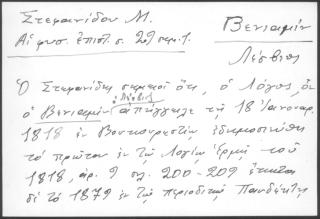 Στεφανίδου Μ.
Βενιαμίν
Αἱ φυσ. ἐπιστ. σ. 29 σημ. 1.
Λέσβιος
Ὁ Στεφανίδης σημειοῖ ὅτι, ὁ Λόγος, ὃν
ὁ Λέσβιος
ὁ Βενιαμὶν ἀπήγγειλε τῇ 18 Ἰανουαρ.
1818 ἐν Βουκουρεστίῳ ἐδημοσιεύθη
τὸ πρῶτον ἐν τῷ Λογίῳ Ἑρμῇ τοῦ
1818, ἀρ. 9 σλ. 200-209 ἔπειτα
δὲ τὸ 1879 ἐν τῇ περιοδικῇ Πανδώρᾳ